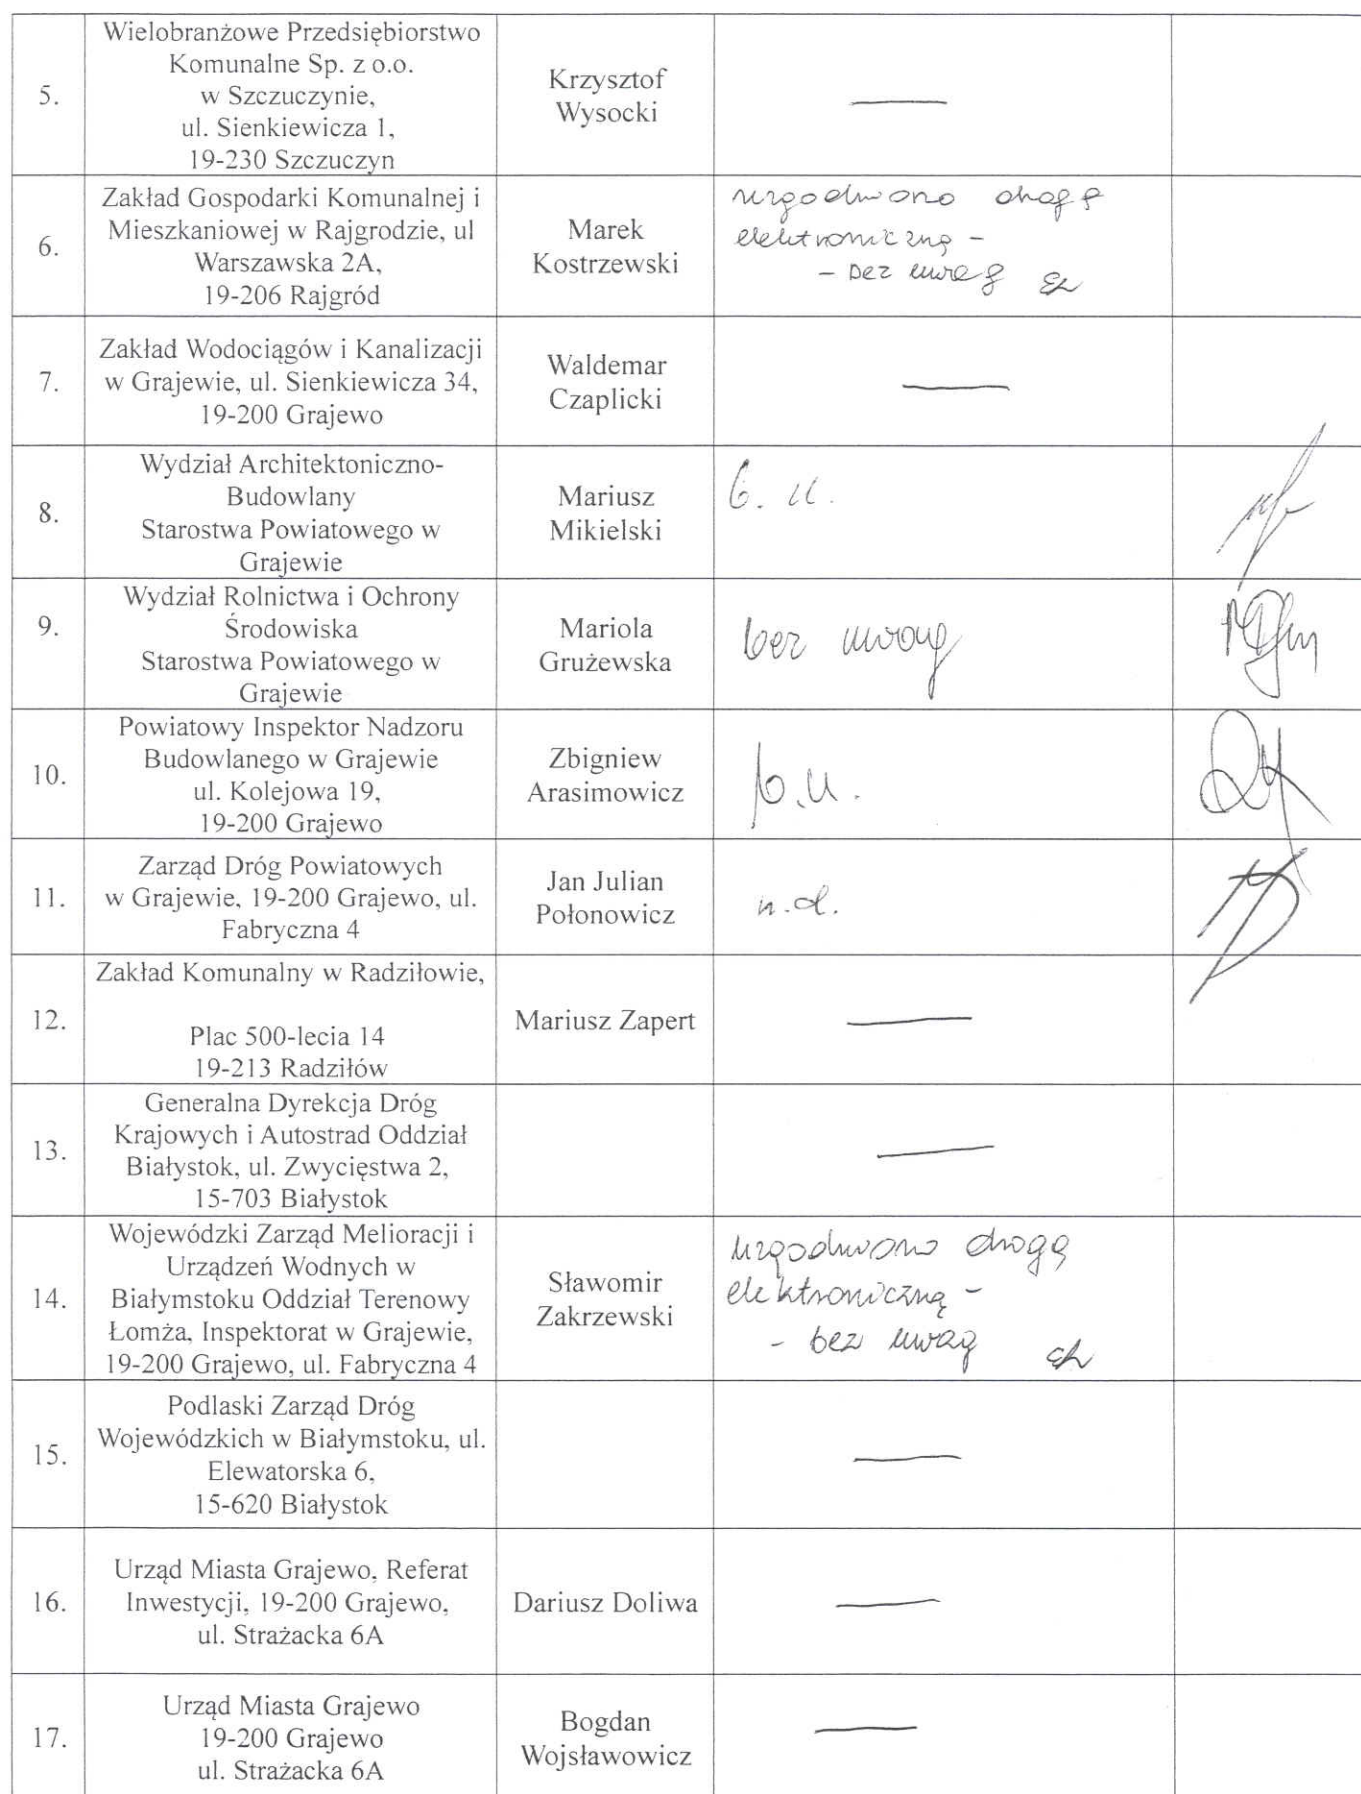 5.
Wielobranżowe Przedsiębiorstwo
Komunalne Sp. z o.o.
w Szczuczynie,
ul. Sienkiewicza 1,
19-230 Szczuczyn
Krzysztof
Wysocki
—
6.
Zakład Gospodarki Komunalnej i
Mieszkaniowej w Rajgrodzie, ul
Warszawska 2A,
19-206 Rajgród
Marek
Kostrzewski
uzgodniono drogą
elektroniczną -
- bez uwag
7.
Zakład Wodociągów i Kanalizacji
w Grajewie, ul. Sienkiewicza 34,
19-200 Grajewo
Waldemar
Czaplicki
—
8.
Wydział Architektoniczno-
Budowlany
Starostwa Powiatowego w
Grajewie
Mariusz
Mikielski
b. u.
9.
Wydział Rolnictwa i Ochrony
Środowiska
Starostwa Powiatowego w
Grajewie
Mariola
Grużewska
bez uwag
10.
Powiatowy Inspektor Nadzoru
Budowlanego w Grajewie
ul. Kolejowa 19,
19-200 Grajewo
Zbigniew
Arasimowicz
b.u.
11.
Zarząd Dróg Powiatowych
w Grajewie, 19-200 Grajewo, ul.
Fabryczna 4
Jan Julian
Połonowicz
n.d.
12.
Zakład Komunalny w Radziłowie,
Plac 500-lecia 14
19-213 Radziłów
Mariusz Zapert
—
13.
Generalna Dyrekcja Dróg
Krajowych i Autostrad Oddział
Białystok, ul. Zwycięstwa 2,
15-703 Białystok
—
14.
Wojewódzki Zarząd Melioracji i
Urządzeń Wodnych w
Białymstoku Oddział Terenowy
Łomża, Inspektorat w Grajewie,
19-200 Grajewo, ul. Fabryczna 4
Sławomir
Zakrzewski
uzgodniono drogą
elektroniczną -
- bez uwag
15.
Podlaski Zarząd Dróg
Wojewódzkich w Białymstoku, ul.
Elewatorska 6,
15-620 Białystok
—
16.
Urząd Miasta Grajewo, Referat
Inwestycji, 19-200 Grajewo,
ul. Strażacka 6A
Dariusz Doliwa
—
17.
Urząd Miasta Grajewo
19-200 Grajewo
ul. Strażacka 6A
Bogdan
Wojsławowicz
—